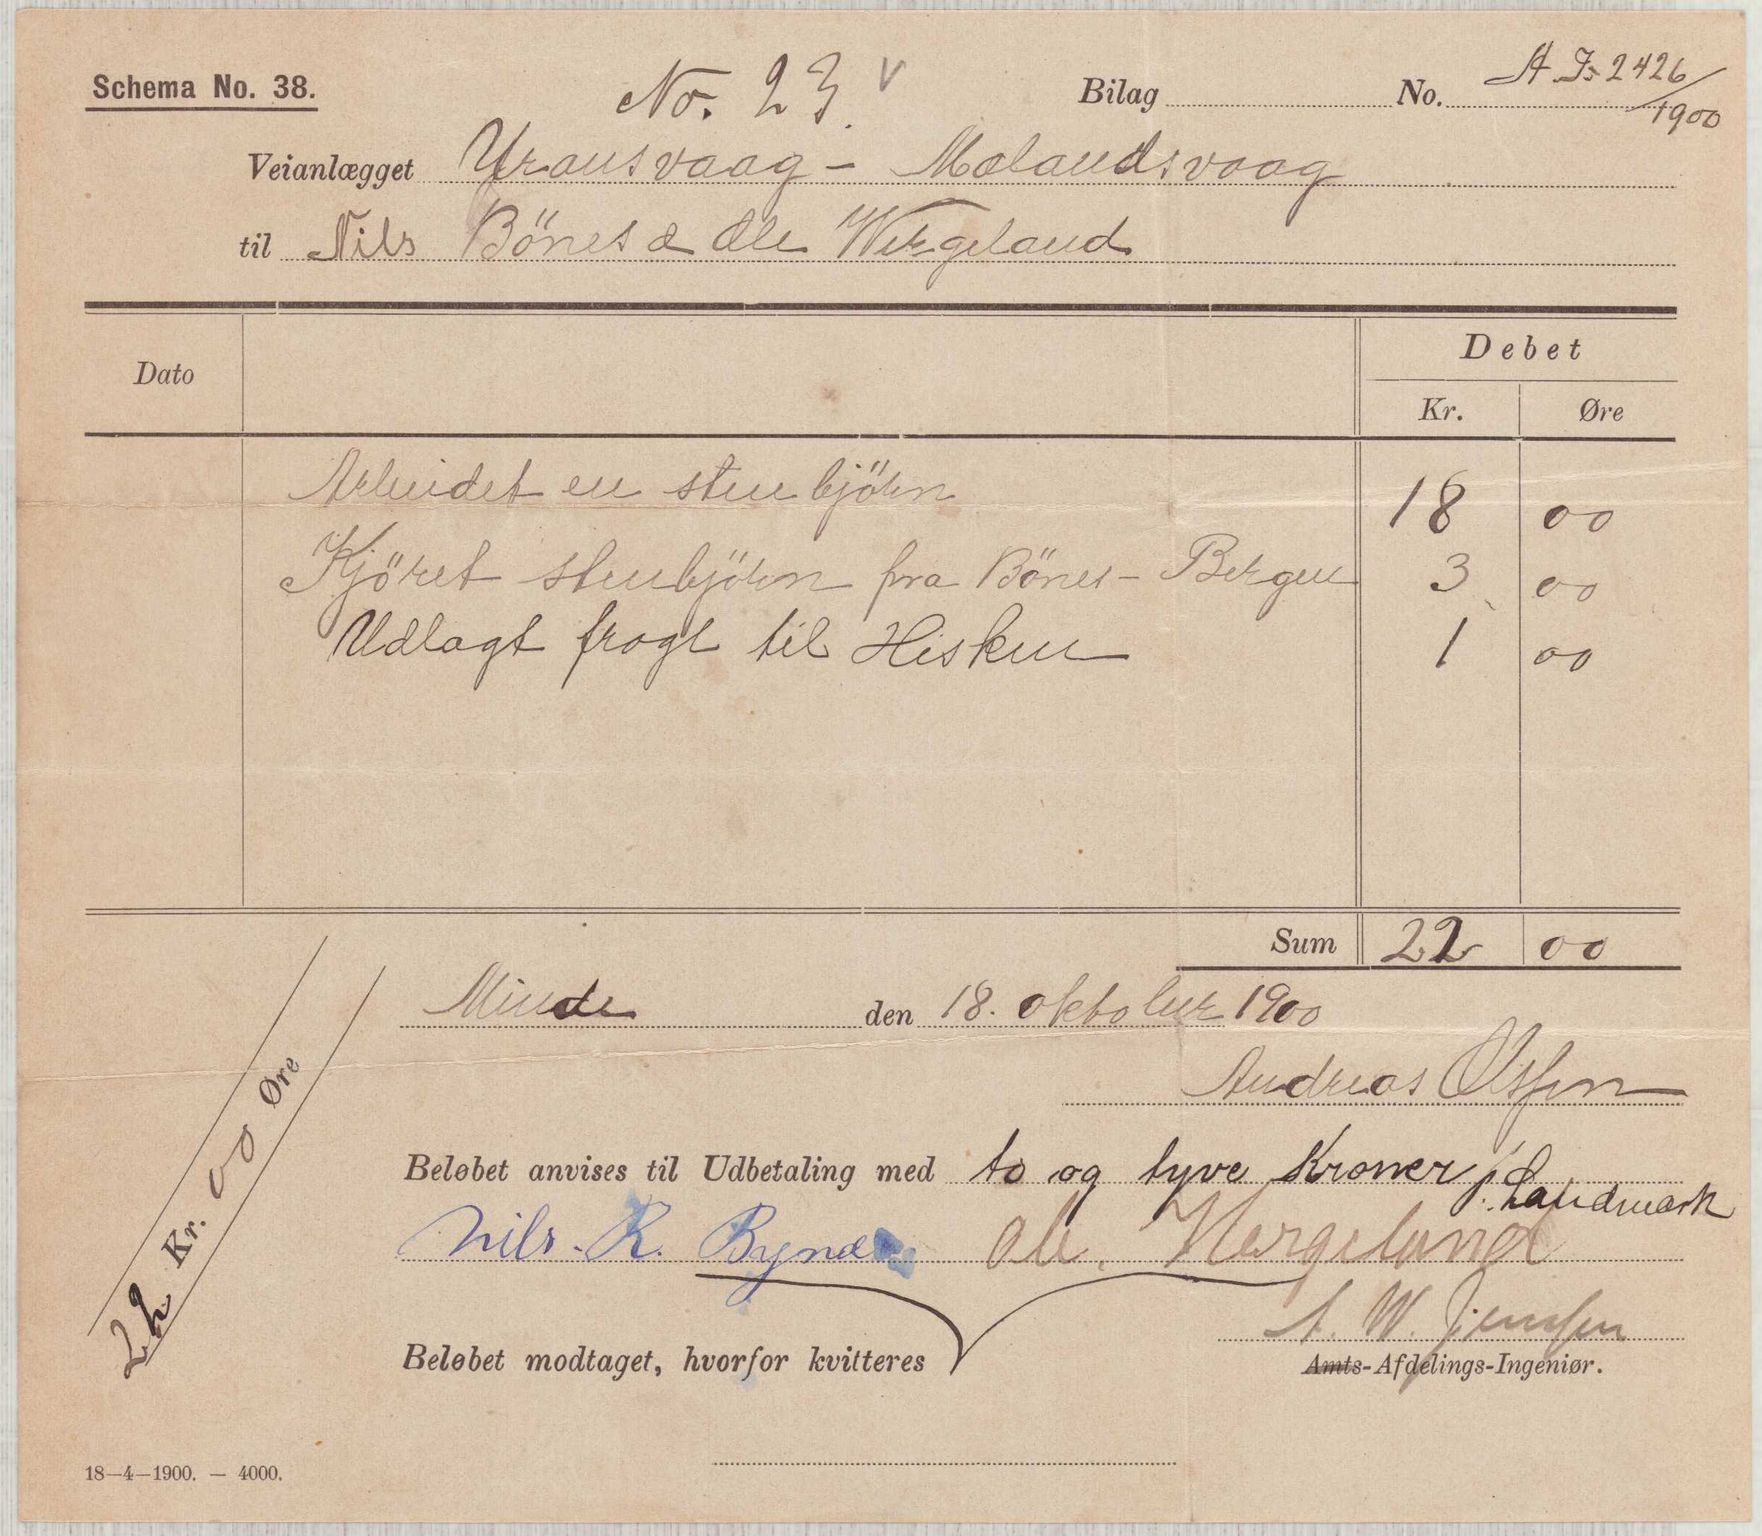 Schema No. 38.
No. 23 v
Bilag No. A. Js 2426/1900
Veianlægget Uransvaag - Mølandsvaag
til Nils Bönes & Ole Wergeland
Dato
Debet
Kr. Øre
Arbeidet en stenbjörn 18 00
Kjöret stenbjörn fra Bönes - Bergen 3 00
Udlagt fragt til Hisken 1 00
Sum 22 00
Minde den 18. oktober 1900
Andreas Olsen
22 Kr. 00 Øre
Beløbet anvises til Udbetaling med to og tyve Kroner
Landmark
Nils. R. Bynes Ole. Wergeland
A. W. Jenssen
Beløbet modtaget, hvorfor kvitteres
Amts-Afdelings-Ingeniør.
18—4—1900. — 4000.